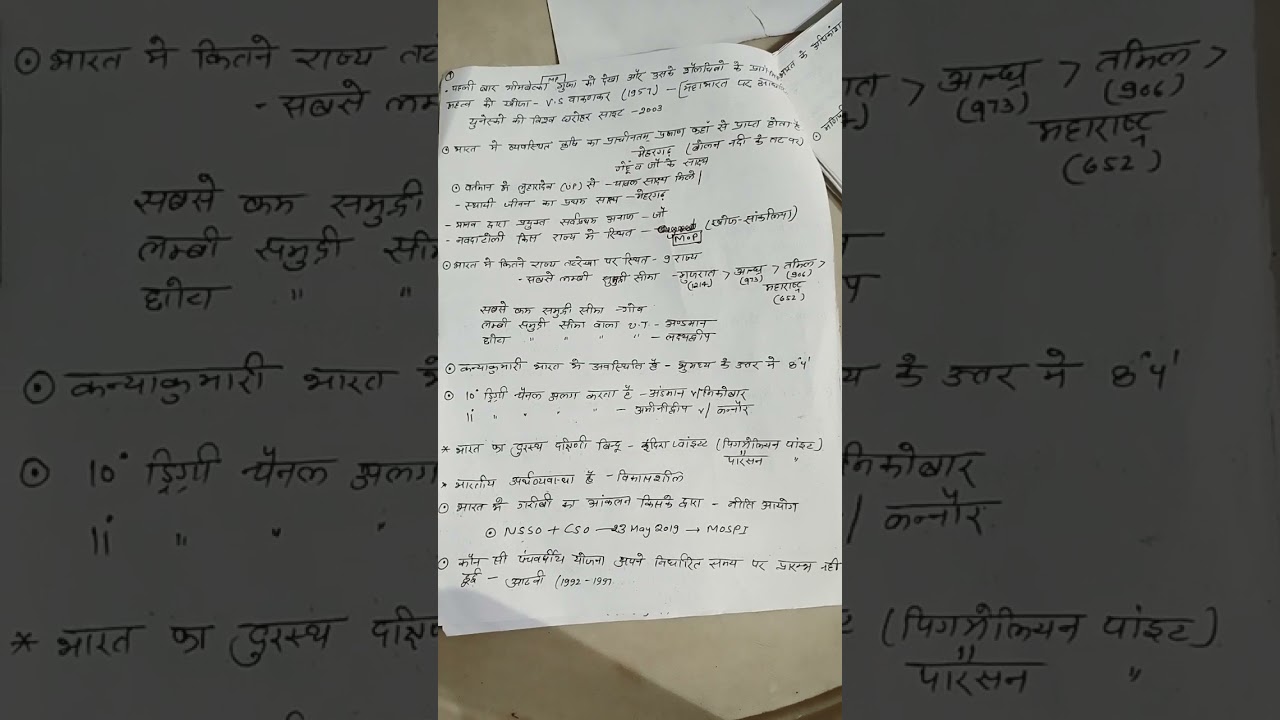 पहली बार भीमबेटका MP गुफा को देखा और उसके शैलचित्रो के
महत्व को खोजा - V.S वाकणकर (1957) -
युनेस्को की विश्व धरोहर साइट - 2003
⊙ भारत मे व्यवस्थित कृषि का प्राचीनतम प्रमाण कहां से प्राप्त होता है
- मेहरगढ़ (बोलन नदी के तट पर)
गेहूँ व जौ के साक्ष्य
⊙ वर्तमान मे लहुरादेव (UP) से - चावल साक्ष्य मिले
- स्थायी जीवन का प्रथम साक्ष्य - मेहरगढ़
- मानव द्वारा प्रयुक्त सर्वप्रथम अनाज - जौ
- नवदाटोली किस राज्य मे स्थित - MOP (खोज-सांकलिया)
⊙ भारत मे कितने राज्य तटरेखा पर स्थित - 9 राज्य
- सबसे लम्बी समुद्री सीमा - गुजरात > आन्ध्र > तमिल >
(1214) (973) (906)
महाराष्ट्र
(652)
सबसे कम समुद्री सीमा - गोवा
लम्बी समुद्री सीमा वाला U.T - अण्डमान
छोटा " " " " - लक्ष्यद्वीप
⊙ कन्याकुमारी भारत मे अवस्थिति है - भूमध्य के उत्तर मे 8°4'
⊙ 10° ड्रिग्री चैनल अलग करता है - अंडमान v/निकोबार
11° " " " " - अमीनीद्वीप v/ कन्नौर
* भारत का दुरस्थ दक्षिणी बिन्दु - इंदिरा प्वांइट (पिगमेलियन पांइट)
पारसन "
* भारतीय अर्थव्यवस्था है - विकासशील
⊙ भारत मे गरीबी का आंकलन किसके द्वारा - नीति आयोग
⊙ NSSO + CSO — 23 May 2019 → MOSPI
⊙ कौन सी पंचवर्षीय योजना अपने निर्धारित समय पर प्रारम्भ नही
हुई - आठवी (1992-1997